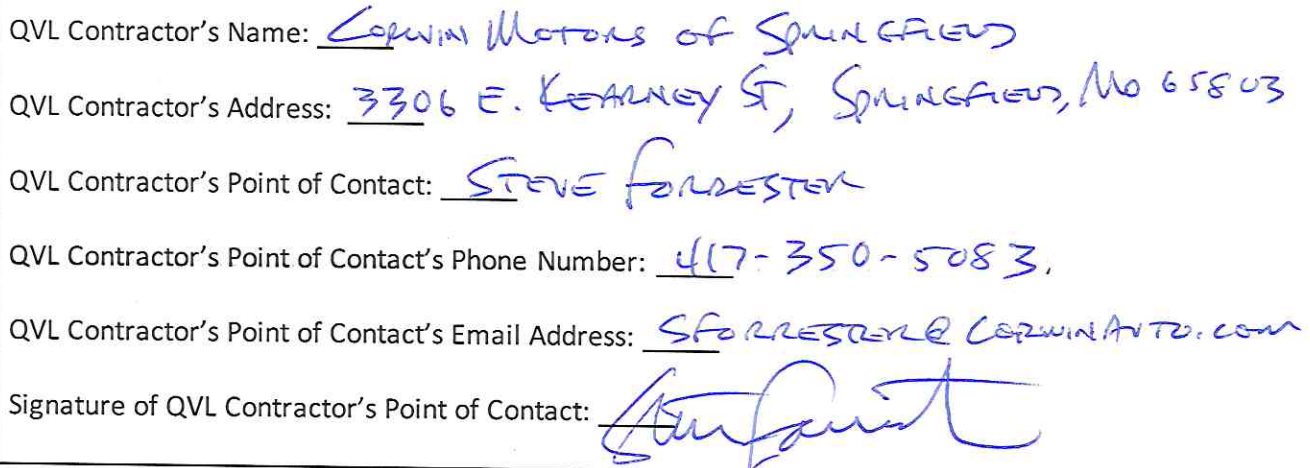 QVL Contractor's Name: CORWIN MOTORS OF SPRINGFIELD
QVL Contractor's Address: 3306 E. KEARNEY ST, SPRINGFIELD, MO 65803
QVL Contractor's Point of Contact: STEVE FORRESTER
QVL Contractor's Point of Contact's Phone Number: 417-350-5083.
QVL Contractor's Point of Contact's Email Address: SFORRESTER@CORWINAUTO.COM
Signature of QVL Contractor's Point of Contact: